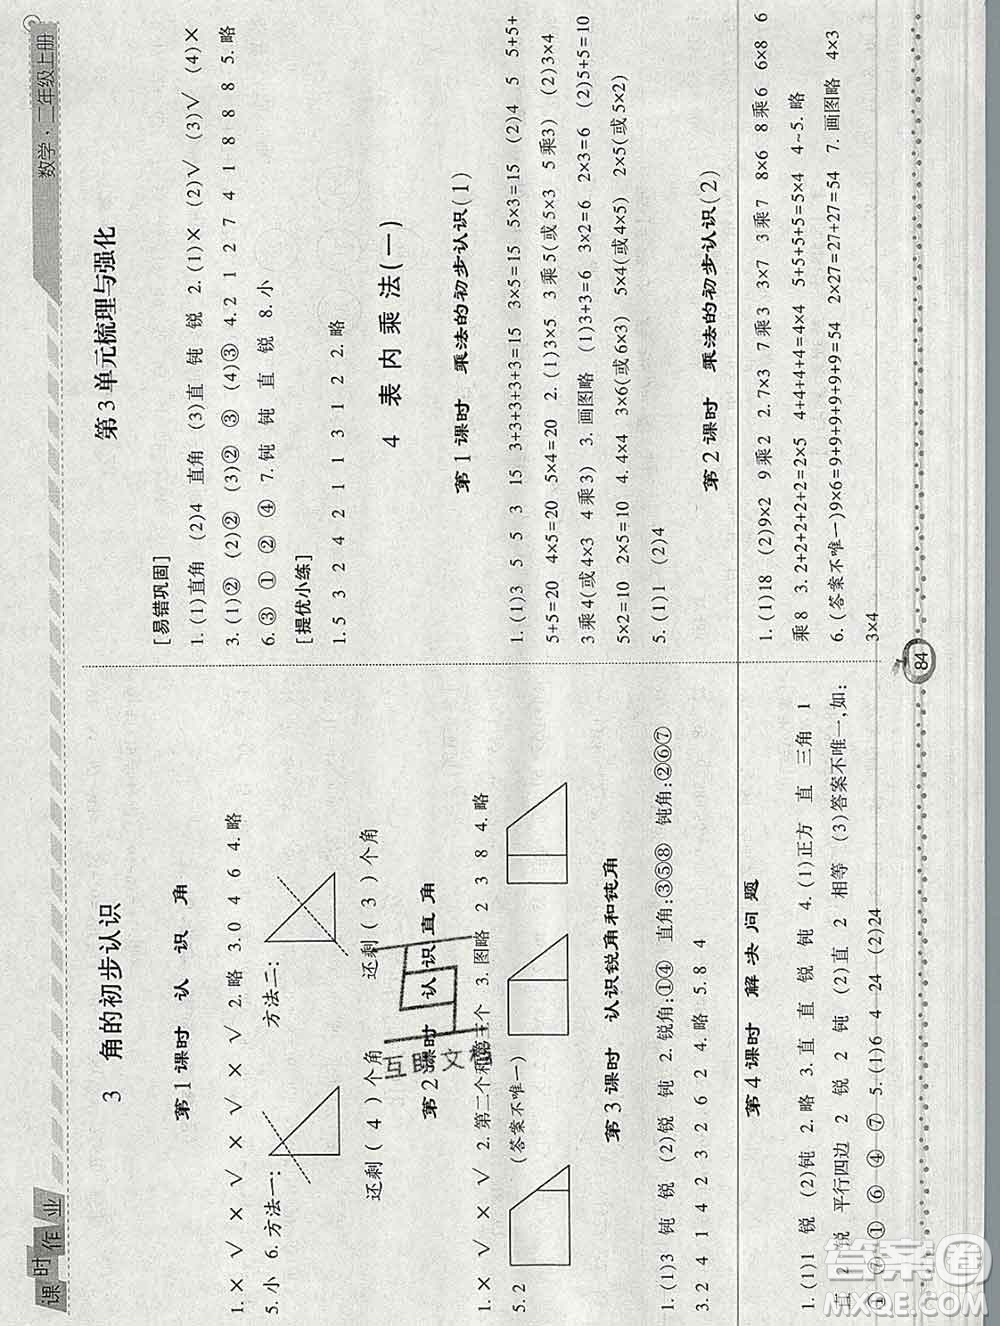 课时作业
数学·二年级上册
3 角的初步认识
第1课时 认识角
1. × √ × √ × √ × √ 2. 略 3. 0 4 6 4. 略
5. 小 6. 方法一: 方法二:
还剩(4)个角 还剩(3)个角
第2课时 认识直角
1. × √ × √ 2. 第二个和第三个 3. 图略 2 3 8 4. 略
5. 2 (答案不唯一)
第3课时 认识锐角和钝角
1. (1)3 钝 锐 (2)锐 钝 2. 锐角:①④ 直角:③⑤⑧ 钝角:②⑥⑦
3. 2 4 1 4 2 3 2 6 2 4. 略 5. 8 4
第4课时 解决问题
1. (1)1 锐 (2)钝 2. 略 3. 直 直 锐 钝 4. (1)正方 直 三角 1
直 2 锐 平行四边 2 锐 2 钝 (2)直 2 相等 (3)答案不唯一,如:
① ⑦ ① ⑥ ④ ⑦ 5. (1)6 4 24 (2)24
第3单元梳理与强化
[易错巩固]
1. (1)直角 (2)4 直角 (3)直 钝 锐 2. (1)× (2)√ (3)√ (4)×
3. (1)② (2)② (3)② ③ (4)③ 4. 2 1 2 7 4 1 8 8 8 5. 略
6. ③ ① ② ④ 7. 钝 钝 直 锐 8. 小
[提优小练]
1. 5 3 2 4 2 1 1 3 1 2 2. 略
4 表内乘法(一)
第1课时 乘法的初步认识(1)
1. (1)3 5 5 3 15 3+3+3+3+3=15 3×5=15 5×3=15 (2)4 5 5+5+
5+5=20 4×5=20 5×4=20 2. (1)3×5 3乘5(或5×3 5乘3) (2)3×4
3乘4(或4×3 4乘3) 3. 画图略 (1)3+3=6 3×2=6 2×3=6 (2)5+5=10
5×2=10 2×5=10 4. 4×4 3×6(或6×3) 5×4(或4×5) 2×5(或5×2)
5. (1)1 (2)4
第2课时 乘法的初步认识(2)
1. (1)18 (2)9×2 9乘2 2. 7×3 7乘3 3×7 3乘7 8×6 8乘6 6×8 6
乘8 3. 2+2+2+2+2=2×5 4+4+4+4=4×4 5+5+5+5=5×4 4~5. 略
6. (答案不唯一)9×6=9+9+9+9+9+9=54 2×27=27+27=54 7. 画图略 4×3
3×4
84
答案圈
MXQE.COM